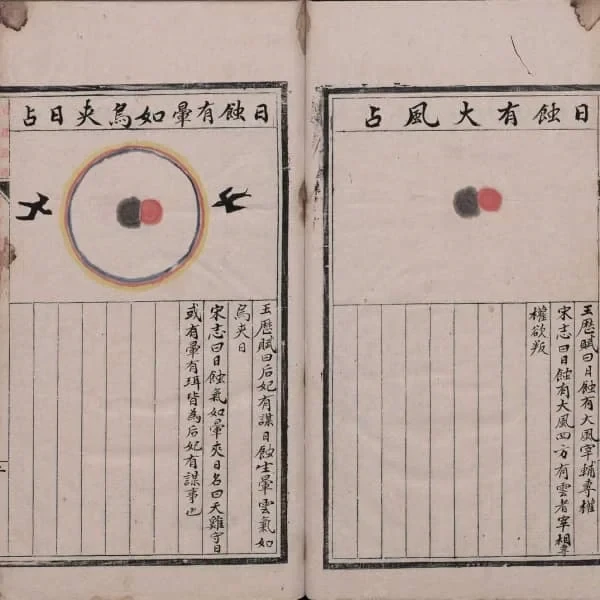 日蝕有大風占
玉歷賦曰日蝕有大風宰輔專權
宋志曰日蝕有大風四方有雲者宰相專
權欲叛
日蝕有暈如烏夾日占
玉歷賦曰后妃有謀日蝕生暈雲氣如
烏夾日
宋志曰日蝕氣如暈夾日名曰天雞守日
或有暈有珥皆為后妃有謀事也